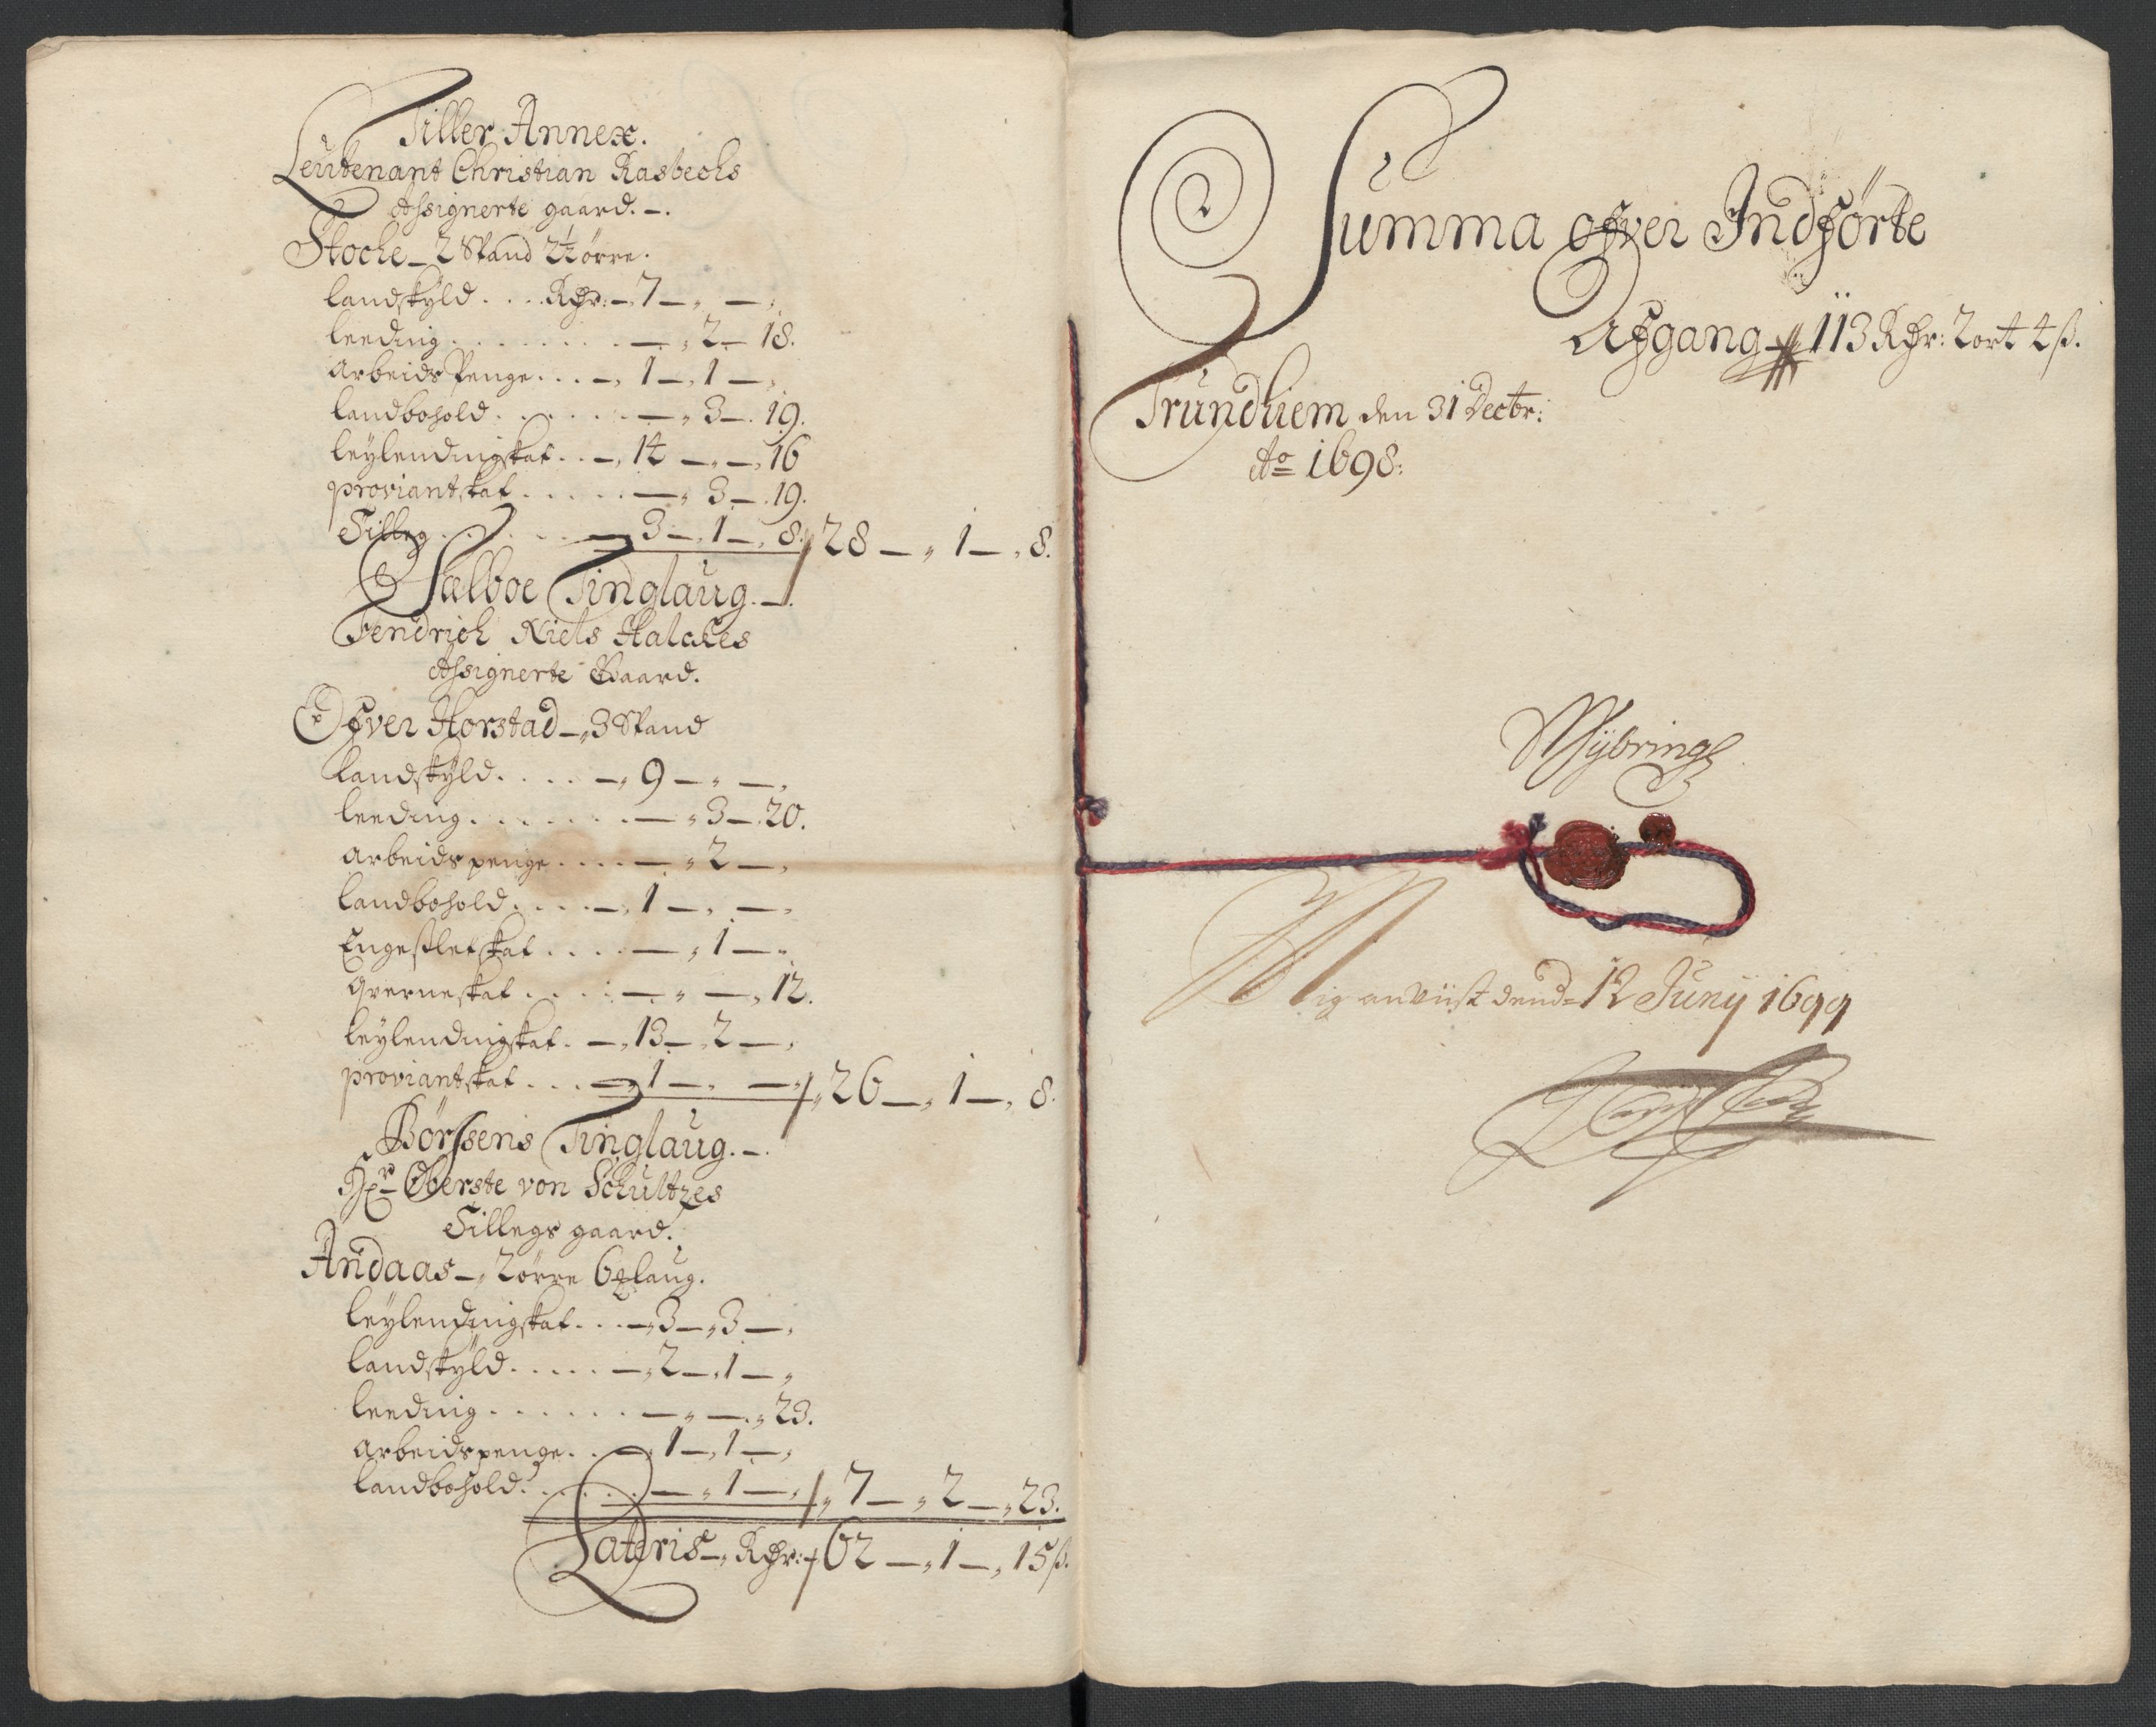 Tiller Annex.
Leutenant Christian Rasbechs
Assignerte gaard. -.
Stoche - 2 Spand 2½ ørre.
landskyld . . . Rdr: - 7 - „ - „
leeding . . . . . . . . - „ 2 - 18.
arbeids Penge . . . - „ 1 - „ 1 - „
landbohold . . . . . . - „ 3 - . 19.
leylendingskat . . - „ 14 - „ - „ 16
proviantskat . . . . . - „ 3 - . 19.
Tilleg . . . . . . . - 3 - „ 1 - „ 8. / 28 - „ 1 - „ 8.
Sælboe Tinglaug. -.
Fendrich Niels Halches
Assignerte Gaard.
Ofver Horstad - „ 3 Spand
Landskyld . . . . - „ 9 - „ - „
leeding . . . . . . . - „ 3 - . 20.
arbeidspenge . . . . - „ 2 - „
landbohold . . . . - „ 1 - „ - „
Engesletskat . . . . - „ 1 - „
qverneskat . . . . - „ - „ 12.
leylendingskat . - „ 13 - „ 2 - „
proviantskat . . . - „ 1 - „ - „ / „ 26 - „ 1 - „ 8.
Børssens Tinglaug. -.
Hr Oberste von Schultzes
Tillegs gaard.
Andaas - „ 2 ørre 6 laug.
leylendingskat . . . - „ 3 - „ 3 - „
landskyld . . . . . - „ 2 - „ 1 - „
leeding . . . . . . - „ - „ 23.
arbeidspenge . . - „ 1 - „ 1 - „
landbohold . . . . . . - „ 1 - „ / „ 7 - „ 2 - „ 23.
Lateris - „ Rdr: / 62 - „ 1 - „ 15 ß.
Summa ofver Indførte
Afgang - 113 Rdr: 2 ort 4 ß.
Trundhiem den 31 Decbr:
Ao 1698:
Mig anviist dend 12 Juny 1699